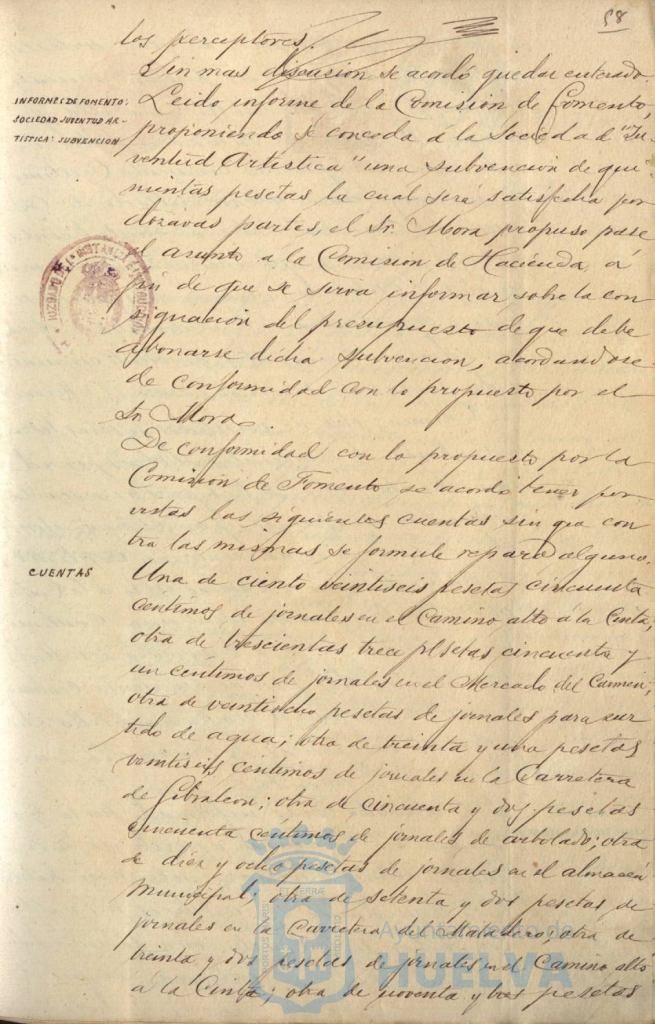 58
los perceptores.
Sin mas discusion se acordó quedar enterado.
INFORMES DE FOMENTO.
SOCIEDAD JUVENTUD AR-
TISTICA: SUBVENCION
Leido informe de la Comisión de Fomento,
proponiendo se conceda á la Sociedad "Ju-
ventud Artistica" una subvención de qui-
nientas pesetas la cual será satisfecha por
dozavas partes, el Sr. Mora propuso pase
el asunto a la Comision de Hacienda, á
fin de que se sirva informar sobre la con
signación del presupuesto de que debe
abonarse dicha subvencion, acordandose
de conformidad con lo propuesto por el
Sr. Mora.
De conformidad con lo propuesto por la
Comision de Fomento se acordó tener por
vistas las siguientes cuentas sin que con
tra las mismas se formule reparo alguno.
CUENTAS
Una de ciento veintiseis pesetas cincuenta
centimos de jornales en el Camino alto á la Cinta;
otra de trescientas trece pesetas cincuenta y
un centimos de jornales en el Mercado del Carmen;
otra de veintiocho pesetas de jornales para sur
tido de agua; otra de treinta y una pesetas
veintiseis centimos de jornales en la Carretera
de Gibraleon; otra de cincuenta y dos pesetas
cincuenta céntimos de jornales de arbolado; otra
de diez y ocho pesetas de jornales en el almacén
Municipal; otra de setenta y dos pesetas de
jornales en la Carretera del Matadero; otra de
treinta y dos pesetas de jornales en el Camino alto
á la Cinta; otra de noventa y tres pesetas
Ayuntamiento de
HUELVA